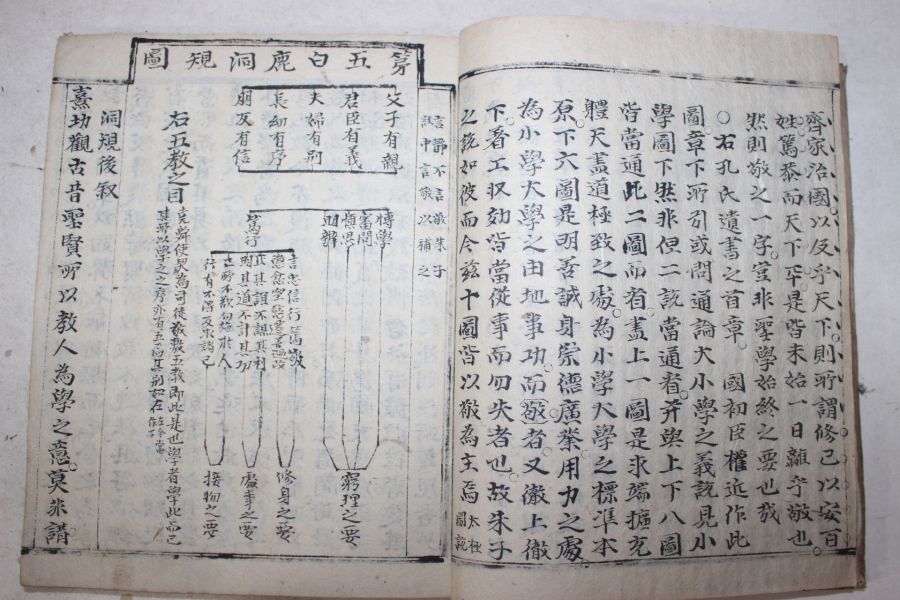 齊家治國以及乎天下則所謂修己以安百
姓篤恭而天下平是皆未始一日離乎敬也
然則敬之一字豈非聖學始終之要也哉
右孔氏遺書之首章 國初臣權近作此
圖章下所引或問通論大小學之義說見小
學圖下然非但二說當通看并與上下八圖
皆當通此二圖而看蓋上二圖是求端擴充
體天盡道極致之處為小學大學之標準本
原下六圖是明善誠身崇德廣業用力之處
為小學大學之田地事功而敬者又徹上徹
下著工収効皆當從事而勿失者也故朱子
之說如彼而今玆十圖皆以敬為主焉 太極圖說
言靜不言敬朱子
註中言敬以補之
第五白鹿洞規圖
父子有親
君臣有義
夫婦有別
長幼有序
朋友有信
右五教之目
堯舜使契為司徒敬敷五教即此是也學者學此而已
其所以學之之序亦有五焉其別如左
博學
審問
愼思
明辨
篤行
言忠信行篤敬
懲忿窒慾遷善改過
正其誼不謀其利
明其道不計其功
己所不欲勿施於人
行有不得反求諸己
窮理之要
修身之要
處事之要
接物之要
洞規後叙
熹竊觀古昔聖賢所以教人為學之意莫非講